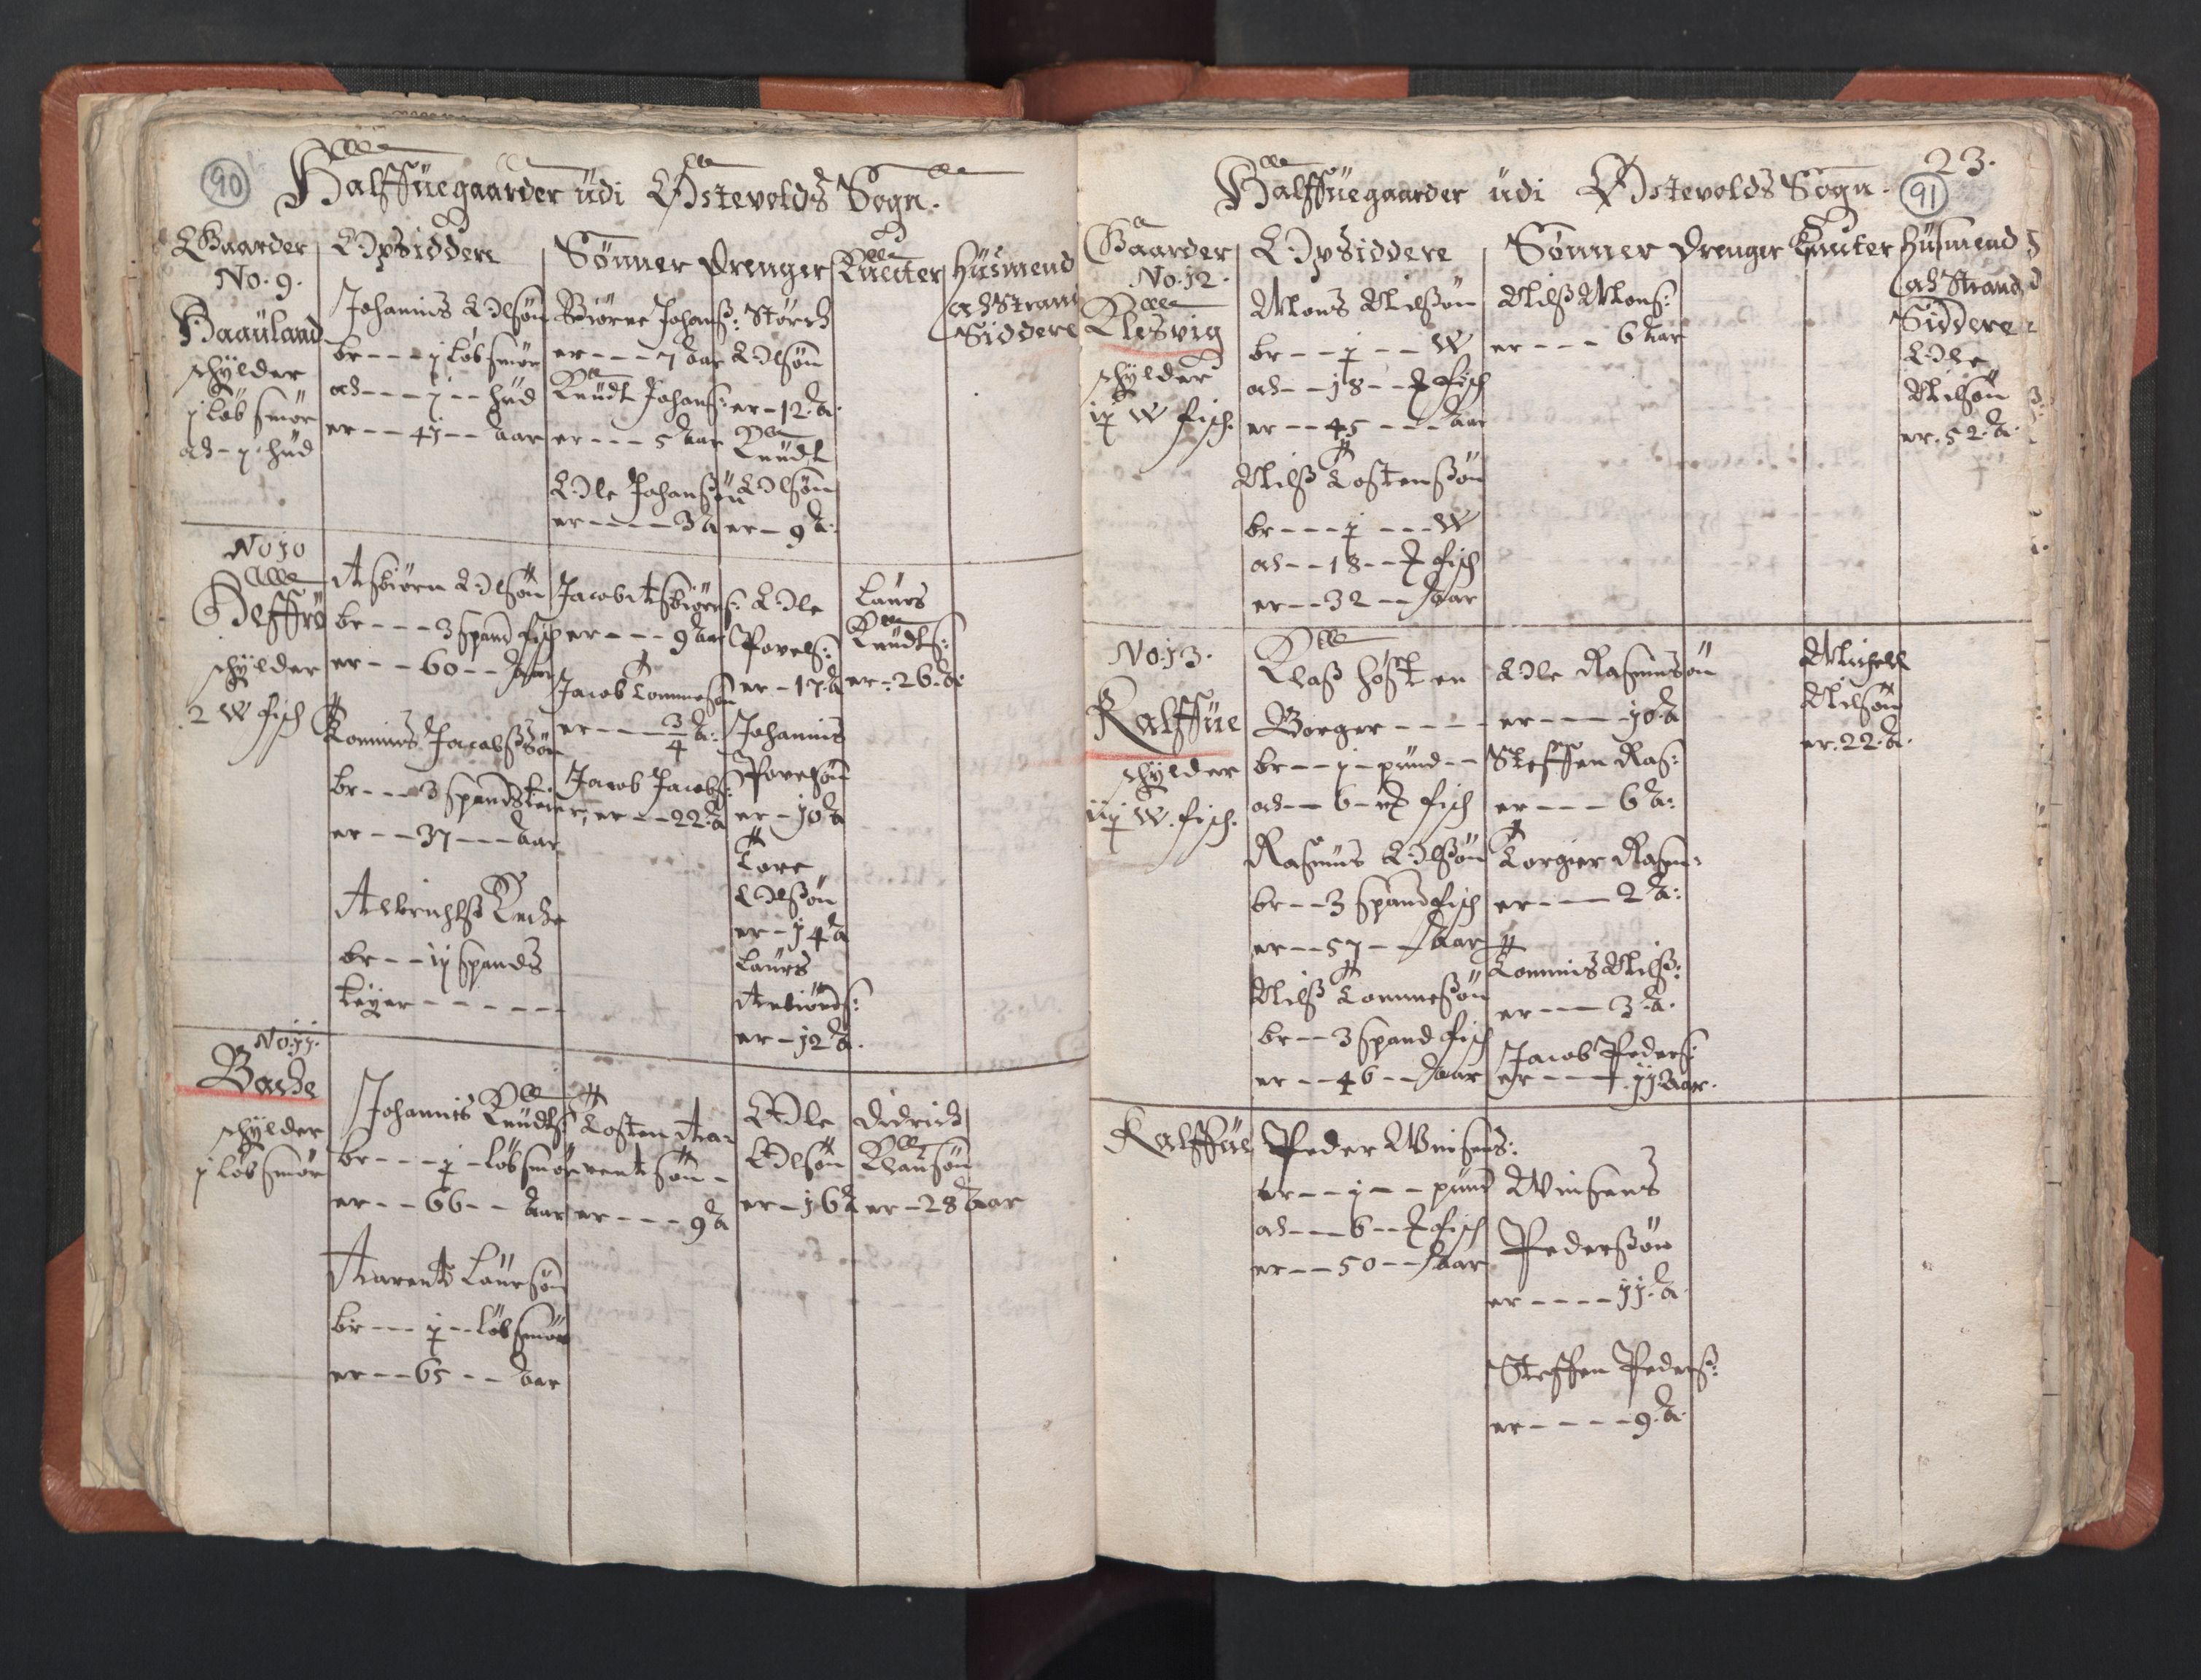 90
Halffuegaarder üdi Østevolds Sogn.
Gaarder
Opsiddere
Sønner
Drenger
Knecter
Hüsmend
och Strand
Siddere
No. 9.
Haaüland
schÿlder
j løb smør
och - j hüd
Johannis Olsøn
br - - - j løb smør
och - - - j - - hüd
er - - 41 - - Aar
Biørne Johanß:
er - - - 7 aar
Knüdt Johanß:
er - - - 5 aar
Ole Johanßøn
er - - - - 3 a
Størch
Olsøn
er - 12 A.
Knüdt
Olsøn
er - 9 A:
No 10
Helffrø
schÿlder
2 W fisch
Asbiørn Olsøn
br - - - 3 spand fisch
er - - 60 - - Aar
Tommis Jacobsßøn
br - - - 3 spands leie
er - - 37 - - - Aar
Albrichts Encke
br - - ij spands
leÿer - - - - - -
Jacob Asbiørns:
er - - - 9 Aar
Jacob Tommesøn
er - - - 3/4 A:
Jacob Jacobs:
er - - 22 A
Ole
Povels:
er - 17 A
Johannis
Povelsøn
er - 10 A
Tore
Olsøn
er - 14 A
Laürs
Arbiørns:
er - 12 A.
Laürs
Knüdts:
er - 26 A:
No. 11.
Backe
schÿlder
j løb smør
Johannis Knüdts
br - - - j - løb smør
er - - 66 - - Aar
Aarents Laursøn
br - - - j - - løb smør
er - - 65 - - Aar
Tosten Aa-
rentsøn -
er - - - 9 A
Ole
Olsøn
er - 16 A
Didrich
Claüsøn
er - 28 Aar
23.
91
Halffüegaarder üdi Østevolds Sogn.
Gaarder
Opsiddere
Sønner
Drenger
Knecter
Hüsmend
och Strand
Siddere
No. 12.
Klesvig
schÿlder
ij W fisch.
Mons Nilßøn
br - - j - - W
och - - 18 - - fisch
er - - 45 - - - Aar
Nilß Tostenßøn
br - - - j - - - W
och - - 18 - - fisch
er - - 32 - - Aar
Nilß Mons:
er - - - 6 Aar
Ole
Nilsøn
er. 52. A.
No. 13.
Kalffüe
schÿlder
W. fisch.
Claß høst en
Borger - - - -
br - - j - pünd - -
och - - 6 - fisch
Rasmüs Olßøn
br - - 3 spand fisch
er - - 57 - - Aar
Nilß Tommeßøn
br - - 3 spand fisch
er - - 46 - - Aar
Ole Rasmusøn
er - - - 10 A
Steffen Ras:
er - - - 6 A:
Torgier Rasm:
er - - - 2 A:
Tommis Nilß:
er - - - 3 A.
Jacob Peders:
er - - - 11 Aar.
Michell
Nilsøn
er. 22. A.
Kalffüe
Peder Winsens:
br - - j - - pünd
och - - 6 - - fisch
er - - 50 - - Aar
Winsens
Pederßøn
er - - - - 11. A
Steffen Pederß:
er - - - - 9. A.